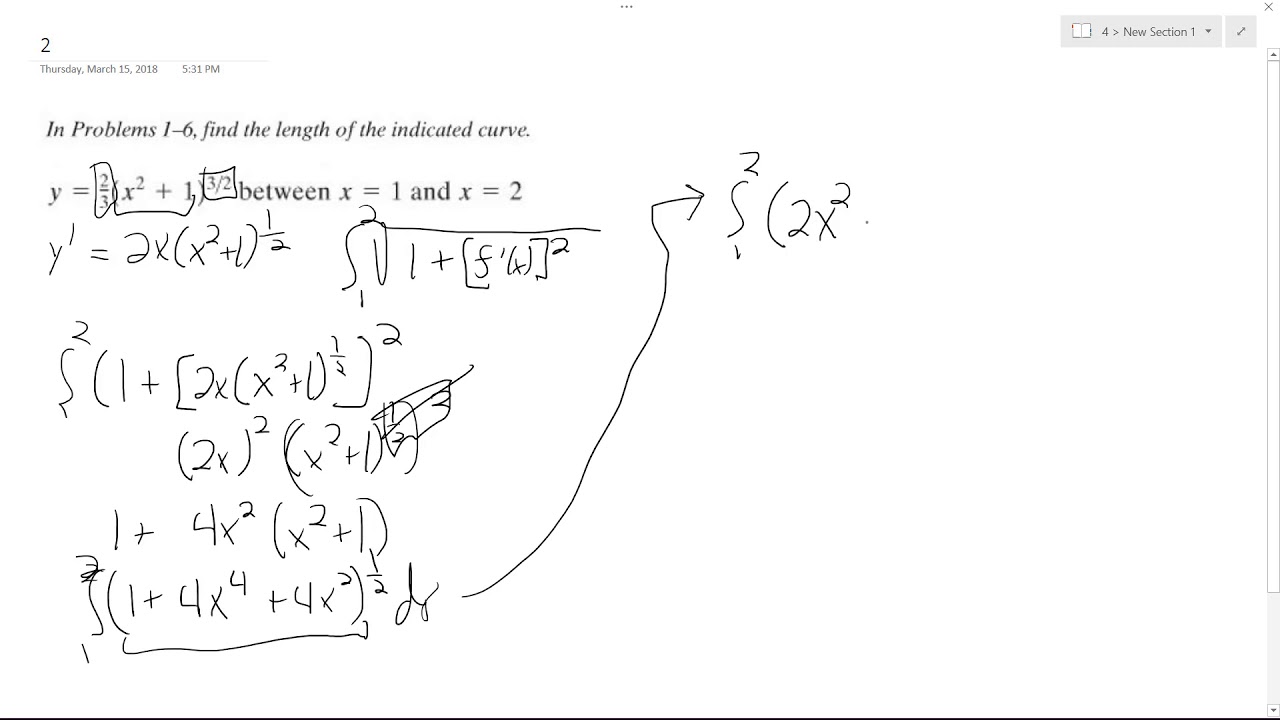 ...
4 > New Section 1
2
Thursday, March 15, 2018 5:31 PM
In Problems 1–6, find the length of the indicated curve.
y = 2/3(x² + 1)^3/2 between x = 1 and x = 2
y' = 2x(x²+1)^1/2
∫₁² √1 + [f'(x)]²
∫₁² (1 + [2x(x²+1)^1/2]²
(2x)² (x²+1)
1 + 4x² (x²+1)
∫₁² (1 + 4x⁴ + 4x²)^1/2 dx
∫₁² (2x²